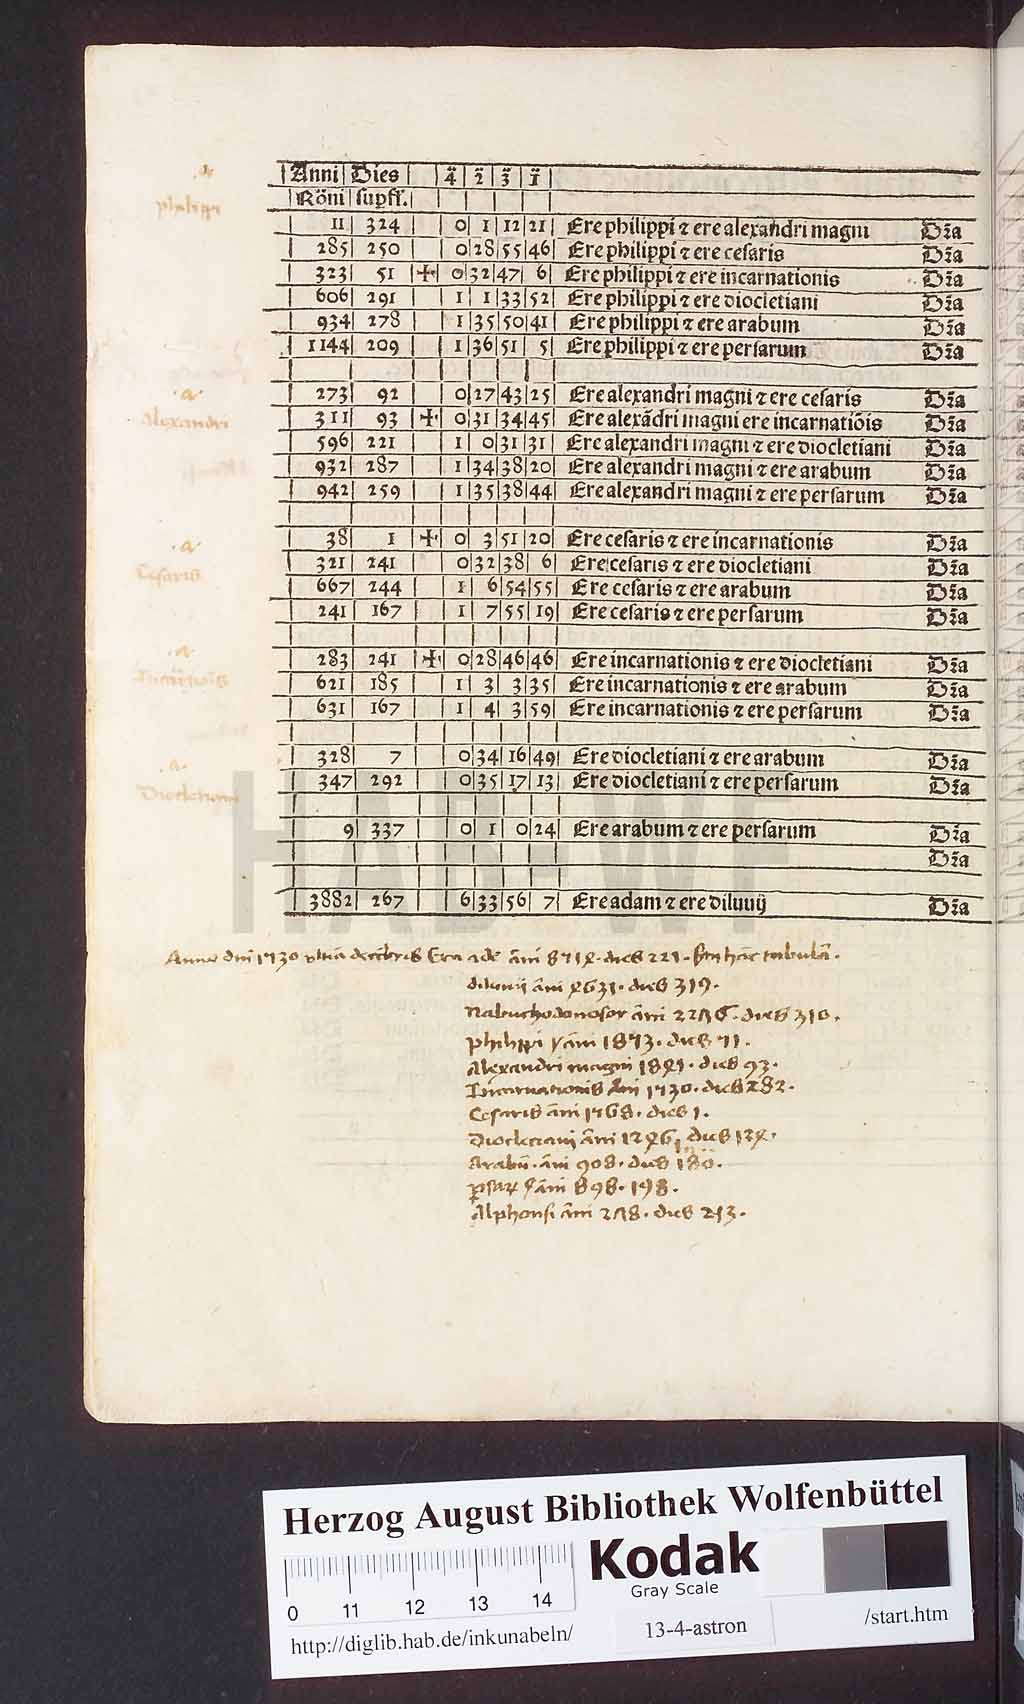 Anni Dies 4̈ 2̈ 3̈ 1̈
Rōni supfl.
philippi
11 324 0 1 12 21 Ere philippi ⁊ ere alexandri magni Dr̄a
285 250 0 28 55 46 Ere philippi ⁊ ere cesaris Dr̄a
323 51 ✢ 0 32 47 6 Ere philippi ⁊ ere incarnationis Dr̄a
606 291 1 1 33 52 Ere philippi ⁊ ere diocletiani Dr̄a
934 278 1 35 50 41 Ere philippi ⁊ ere arabum Dr̄a
1144 209 1 36 51 5 Ere philippi ⁊ ere persarum Dr̄a
a
Alexandri
273 92 0 27 43 25 Ere alexandri magni ⁊ ere cesaris Dr̄a
311 93 ✢ 0 31 34 45 Ere alexādri magni ere incarnatiōis Dr̄a
596 221 1 0 31 31 Ere alexandri magni ⁊ ere diocletiani Dr̄a
932 287 1 34 38 20 Ere alexandri magni ⁊ ere arabum Dr̄a
942 259 1 35 38 44 Ere alexandri magni ⁊ ere persarum Dr̄a
a
Cesaris
38 1 ✢ 0 3 51 20 Ere cesaris ⁊ ere incarnationis Dr̄a
321 241 0 32 38 6 Ere cesaris ⁊ ere diocletiani Dr̄a
667 244 1 6 54 55 Ere cesaris ⁊ ere arabum Dr̄a
241 167 1 7 55 19 Ere cesaris ⁊ ere persarum Dr̄a
a
283 241 ✢ 0 28 46 46 Ere incarnationis ⁊ ere diocletiani Dr̄a
621 185 1 3 3 35 Ere incarnationis ⁊ ere arabum Dr̄a
631 167 1 4 3 59 Ere incarnationis ⁊ ere persarum Dr̄a
a
Diocletiani
328 7 0 34 16 49 Ere diocletiani ⁊ ere arabum Dr̄a
347 292 0 35 17 13 Ere diocletiani ⁊ ere persarum Dr̄a
9 337 0 1 0 24 Ere arabum ⁊ ere persarum Dr̄a
Dr̄a
3882 267 6 33 56 7 Ere adam ⁊ ere diluuij Dr̄a
Anno dni 1730 Era ade āni dies 221 hāc tabulā.
diluuij āni 4631. dies 319.
Nabuchodonosor āni dies 310.
philippi āni dies 71.
Alexandri magni dies 93.
Incarnationis āni 1730. dies 282.
Cesaris āni 1768. dies 1.
Diocletiani āni 1446 dies 124.
Arabū. āni 908. dies 180.
āni 898. 198.
Alphonsi āni dies 213.
HAB-WF
Herzog August Bibliothek Wolfenbüttel
Kodak
Gray Scale
0 11 12 13 14
http://diglib.hab.de/inkunabeln/ 13-4-astron /start.htm